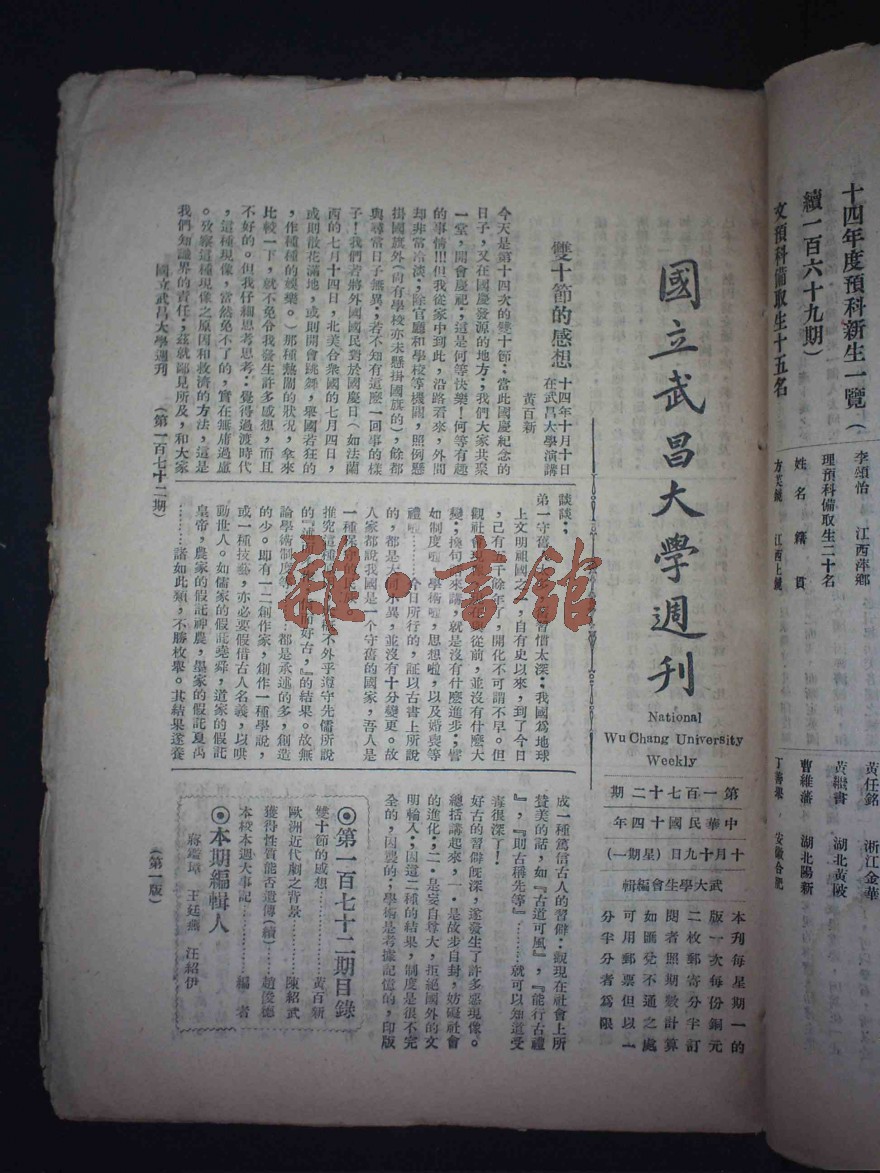 十四年度預科新生一覽（
續一百六十九期）
文預科備取生十五名
李頌怡　江西萍鄉
理預科備取生二十名
姓名　籍貫
方芙鏡　江西上饒
黃任銘　浙江金華
黃繼書　湖北黃陂
曹維藩　湖北陽新
丁善墨　安徽合肥
國立武昌大學週刊
National
Wu Chang University
Weekly
第一百七十二期
中華民國十四年
十月十九日（星期一）
武大學生會編輯
本刊每星期一的
版一次每份銅元
二枚郵寄分半訂
閱者照期數計算
如匯兌不通之處
可用郵票但以一
分半分者為限
雙十節的感想
十四年十月十日
在武昌大學演講
黃百新
今天是第十四次的雙十節：當此國慶紀念的
日子，又在國慶發源的地方；我們大家共聚
一堂，開會慶祀：這是何等快樂！何等有趣
的事情!!!但我從家中到此，沿路看來，外間
却非常冷淡；除官廳和學校等機關，照例懸
掛國旗外（尚有學校亦未懸掛國旗的），餘都
與尋常日子無異；若不知有這麼一回事的樣
子！我們若將外國國民對於國慶日（如法蘭
西的七月十四日，北美合衆國的七月四日，
或則散花滿地，或則開會跳舞，舉國若狂的
，作種種的娛樂。）那種熱鬧的狀況，拿來
比較一下，就不免令我發生許多感想，而且
不好的。但我仔細思考思考：覺得過渡時代
，這種現像，當然免不了的，實在無庸過慮
。攷察這種現像之原因和救濟的方法，這是
我們知識界的責任；茲就鄙見所及，和大家
談談；
第一守舊 習惯太深：我國為地球
上文明祖國之 ，自有史以來，到了今日
，己有五千餘年了，開化不可謂不早。但
觀社會現 從前，並沒有什麼大
變；換句 來講，就是沒有什麼進步；譬
如制度啦，學術啦，思想啦，以及婚喪等
禮啦……今日所行的，証以古書上所說
的，都是大同小異，並沒有十分變更。故
人家都說我國是一個守舊的國家，吾人是
一種保
推究這種 不外乎遵守先儒所說
的『述而 而好古，』的結果。故無
論學術制度等……都是承述的多，創造
的少。即有一二創作家，創作一種學說，
或一種技藝，亦必要假借古人名義，以哄
動世人。如儒家的假託堯舜，道家的假託
皇帝，農家的假託神農，墨家的假託夏禹
………諸如此類，不勝枚舉。其結果遂養
成一種篤信古人的習僻：觀現在社會上所
贊美的話，如『古道可風』，『能行古禮
』，『則古稱先等』……就可以知道受
毒很深了！
好古的習僻旣深，遂發生了許多惡現像。
總括講起來，一·是故步自封，妨礙社會
的進化；二·是妄自尊大，拒絕國外的文
明輸人；因這二種的結果，制度是很不完
全的，因襲的；學術是考據記憶的，印版
◎第一百七十二期目錄
雙十節的感想………黃百新
歐洲近代劇之背景………陳紹武
獲得性質能否遺傳（續）……趙俊德
本校本週大事記………編　者
◎本期編輯人
蔣鑑璋　王廷燕　汪紹伊
國立武昌大學週刊　（第一百七十二期）　（第一版）
雜·書館